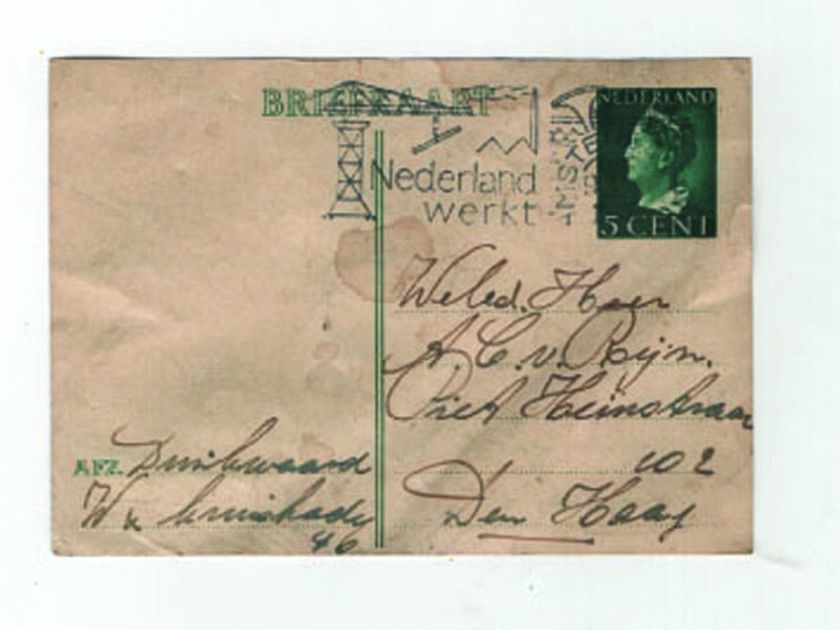 BRIEFKAART
Nederland
werkt
NEDERLAND
5 CENT
Weled. Heer
A. C. v. Rijn.
Piet Heinstraat
102
Den Haag
AFZ.
W
kade
46